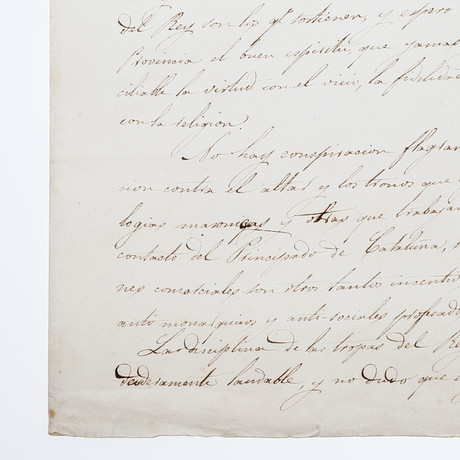 del Rey son los qe. sostienen, y espero
Provincia el buen espiritu, que jamas
ciliable la virtud con el vicio, la fidelidad
con la religion.
No hay conspiracion flagran
cion contra el altar y los tronos que
logias masonicas y otras que trabajan
contacto del Principado de Cataluña,
nes comerciales son otros tantos incenti
anti monarquicos y anti-sociales profesado
La disciplina de las tropas del Re
daderamente laudable, y no dudo que